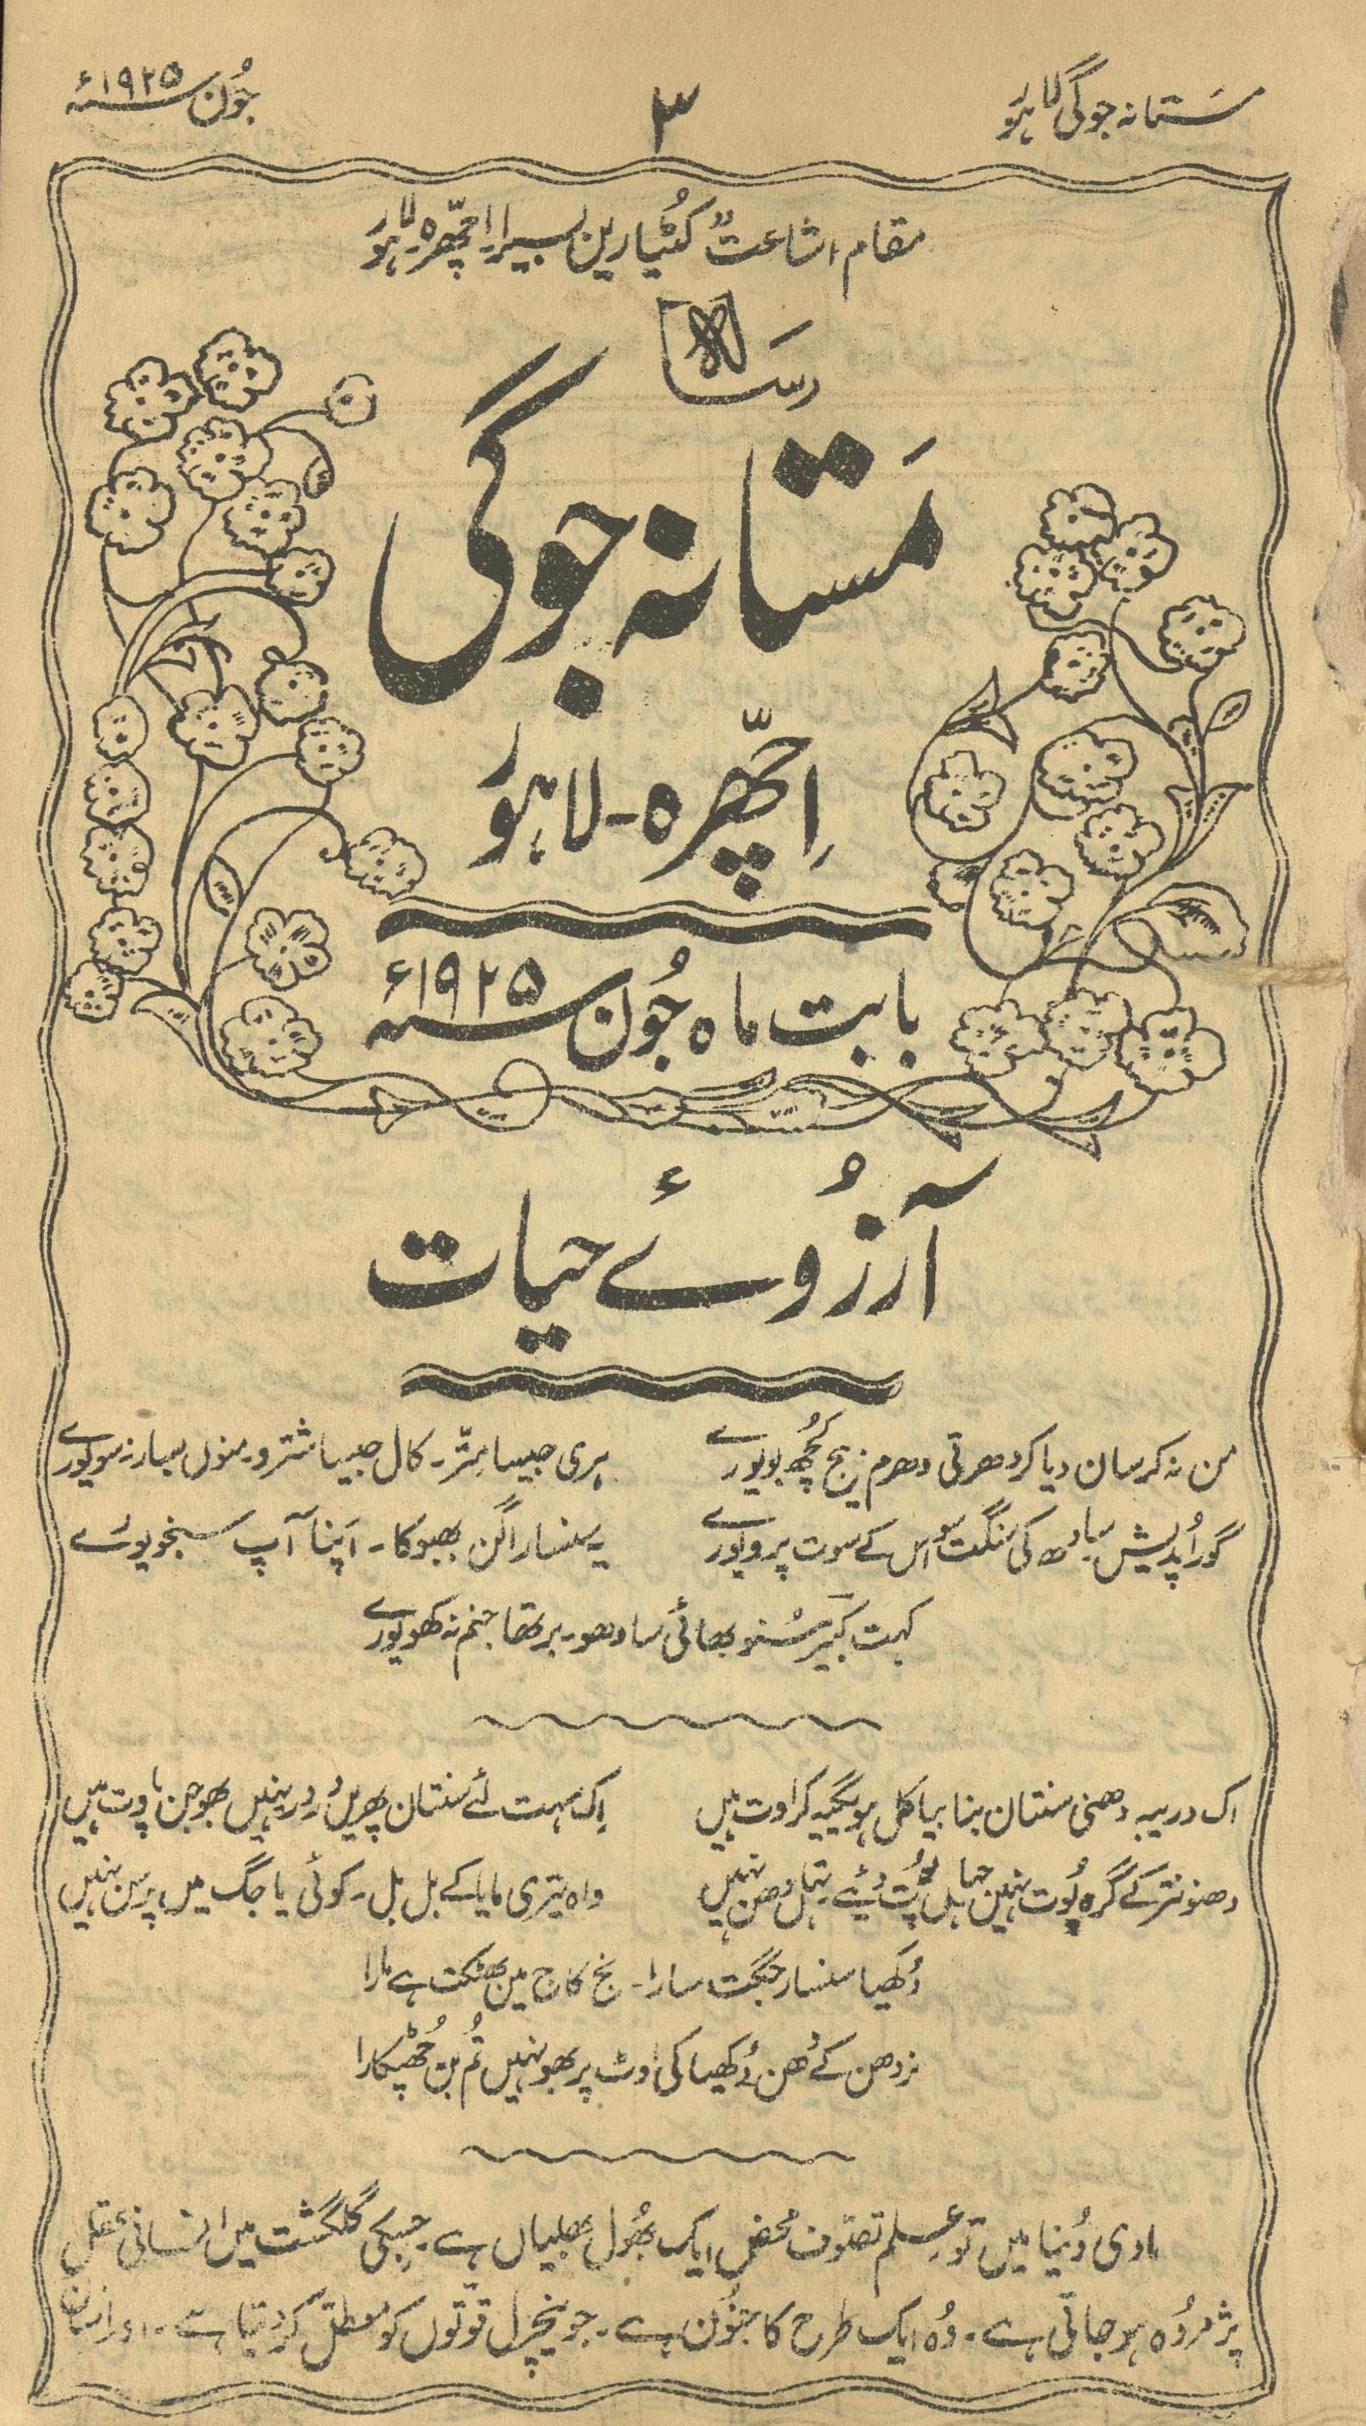 مستانہ جوگی لاہور
۳
جُون سنہ ۱۹۲۵ء
مقام اشاعت کُٹیا رین بسیرا اچھّرہ لاہور
رسالہ
مَستانہ جوگی
اِچھّرہ - لاہور
بابت ماہ جُون سنہ ۱۹۲۵ء
آرزُوئے حیات
من نہ کر سان دیا کر دھرتی دھرم بیج کچُھ بویورے
ہری جیسا مِتّر - کال جیسا شترو - منوں بسار نہ سویورے
گورُ اُپدیش سادھ کی سنگت سوُ اس کے سوت پرویورے
یہ سنسار اگن بھبوکا - اپنا آپ سنجویورے
کہت کبیر سُنو بھائی سادھو - برتھا جنم نہ کھویورے
اک دریبہ دھنی سنتان بنا بیاکل ہو یگیہ کراوت ہیں
اِک بہت لئے سنتان پھریں اُور نہیں بھوجن پاوت ہیں
دھنونتر کے گرہ پُوت نہیں جہاں پُت دئیے تہاں دھن نہیں
واہ تیری مایا کے بل بل - کوئی یا جگ میں پرسن نہیں
دُکھیا سنسار جگت سارا - نج کاج میں بھٹکت ہے مارا
نردھن کے دُھن دُکھیا کی اوٹ پربھو نہیں تُم بن چُھٹکارا
مادی دُنیا میں تو عِلم تصوّف محض ایک بُھول بھلیاں ہے جسکی گلگشت میں انسانی عقل
پژمردُہ ہو جاتی ہے - وُہ ایک طرح کا جنُون ہے - جو نیچرل قوّتوں کو معطل کر دیتا ہے - اور انسان